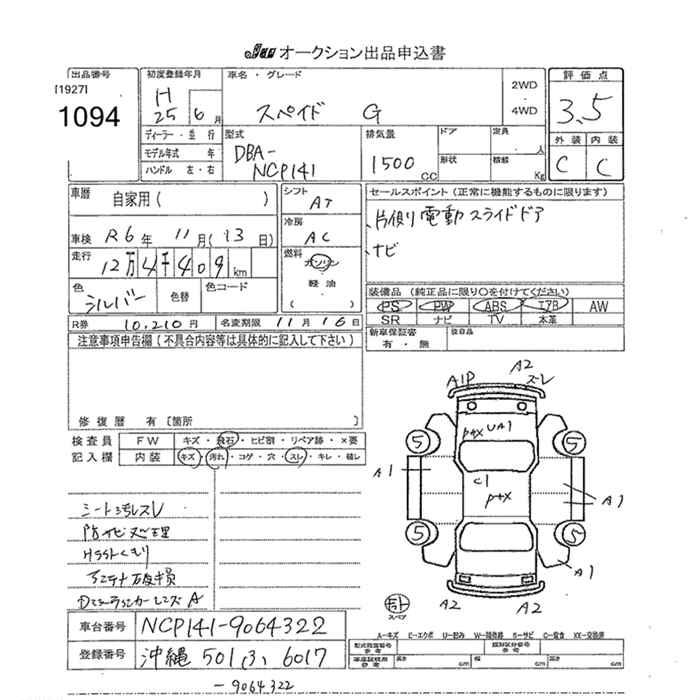 JU オークション出品申込書
出品番号
[1927]
1094
初度登録年月
H 25 年 6 月
車名・グレード
スペイド G
2WD
4WD
評価点
3.5
外装 内装
C C
ディーラー・並行
モデル年式 年
ハンドル 左・右
型式
DBA-
NCP141
排気量
1500 CC
ドア
定員 人
形状
積載 Kg
車歴 自家用( )
シフト AT
車検 R6年 11月(13日)
冷房 AC
走行 12万4千409km
燃料 ガソリン
軽油
( )
色 シルバー
色替
色コード
R券 10,210円
名変期限 11月16日
セールスポイント(正常に機能するものに限ります)
、片側電動スライドドア
、ナビ
装備品(純正品に限り○を付けてください)
PS PW ABS エアB AW
SR ナビ TV 本革
新車保証書
有・無
注意事項申告欄(不具合内容等は具体的に記入して下さい)
修復歴 有[箇所 ]
検査員 FW キズ・飛石・ヒビ割・リペア跡・×要
記入欄 内装 キズ・汚れ・コゲ・穴・スレ・キレ・破レ
シート汚レスレ
防サビ処理
アンテナ破損
A1P
A2
スレ
P+X UA1
5 5
A1
C1
P+X
A1
5 5
A1
A2 A2
スペア
A-キズ E-エクボ U-凹み W-補修跡 S-サビ C-腐食 XX-交換済
車台番号 NCP141-9064322
登録番号 沖縄 501 ほ 6017
型式指定番号
参考
類別区分番号
参考
長さ cm 幅 cm 高さ cm
-9064322